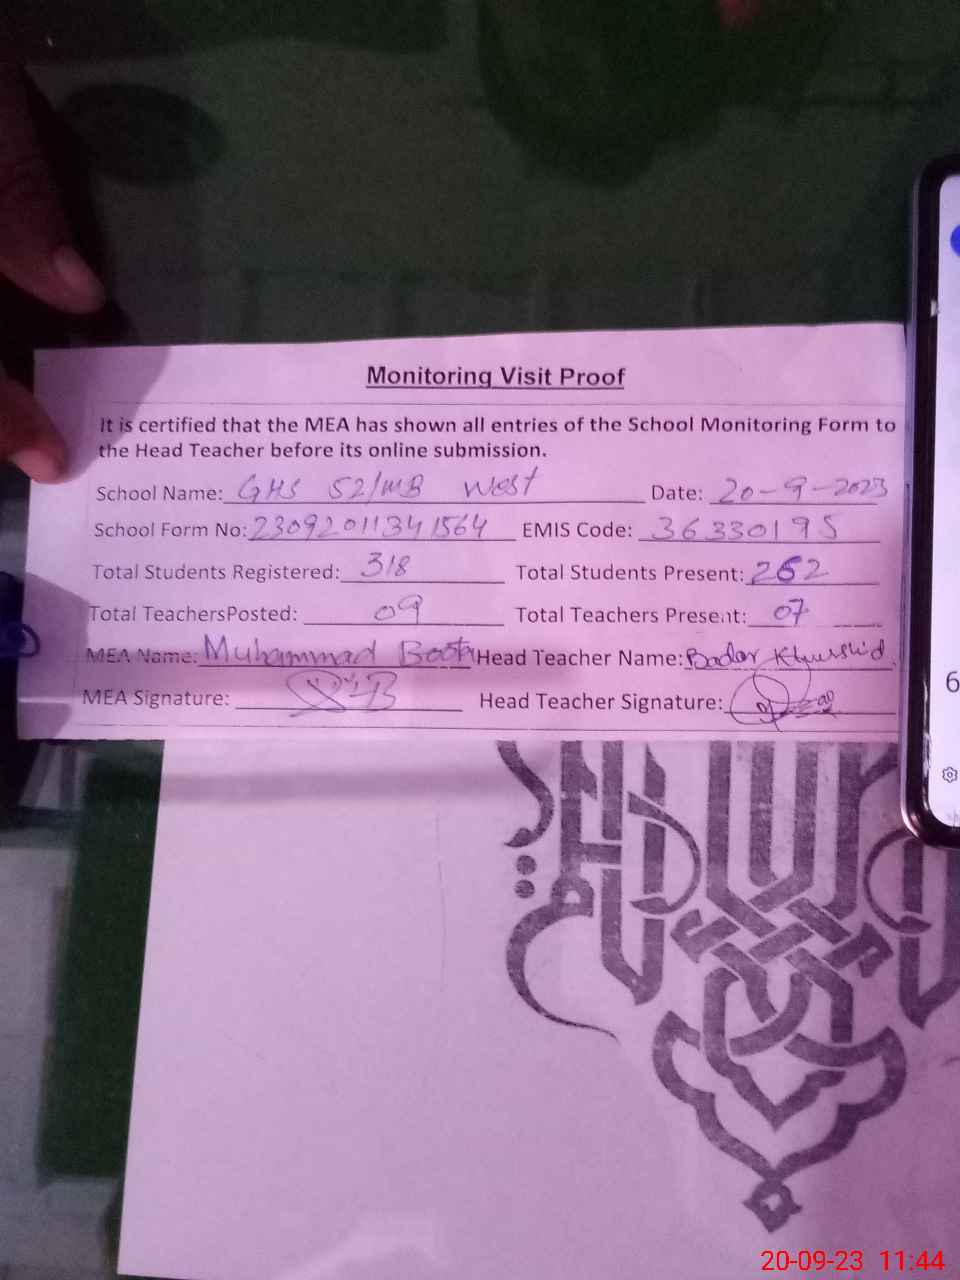 Monitoring Visit Proof
It is certified that the MEA has shown all entries of the School Monitoring Form to
the Head Teacher before its online submission.
School Name: GHS 52/MB West Date: 20-9-2023
School Form No: 23092011341564 EMIS Code: 36330195
Total Students Registered: 318 Total Students Present: 262
Total TeachersPosted: 09 Total Teachers Present: 07
MEA Name: Muhammad Boota Head Teacher Name: Badar Khurshid
MEA Signature: Head Teacher Signature:
6
20-09-23 11:44